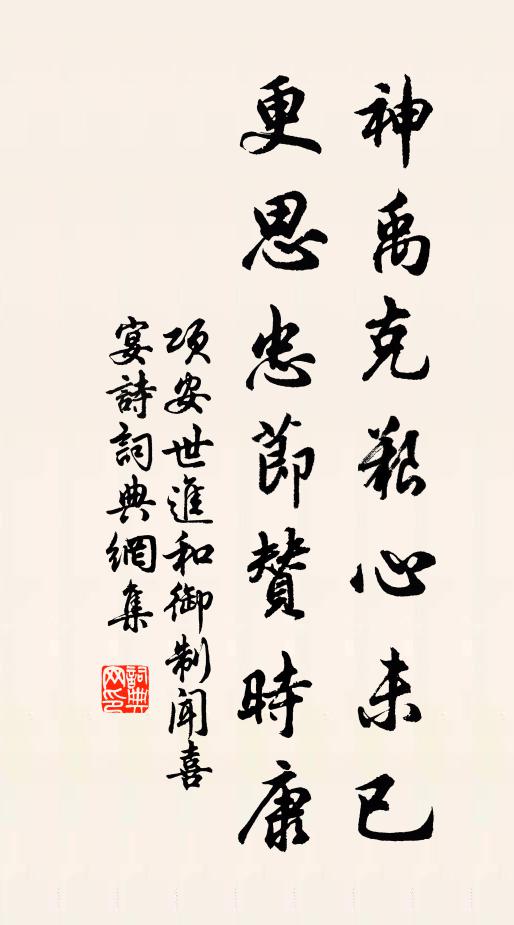 神禹克艱心未已
更思忠節贊時康
項安世進和御制聞喜
宴詩詞典網集
詞典
网印